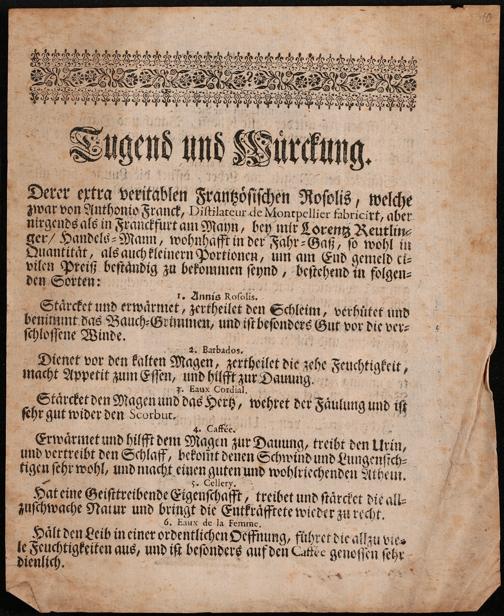 Tugend und Würckung.
Derer extra veritablen Frantzösischen Rosolis, welche
zwar von Anthonio Franck, Distilateur de Montpellier fabricirt, aber
nirgends als in Franckfurt am Mayn, bey mir Lorentz Reutlin-
ger/ Handels-Mann, wohnhafft in der Fahr-Gaß, so wohl in
Quantität, als auch kleinern Portionen, um am End gemeld ci-
vilen Preiß beständig zu bekommen seynd, bestehend in folgen-
den Sorten:
1. Annis Rosolis.
Stärcket und erwärmet, zertheilet den Schleim, verhütet und
benimmt das Bauch-Grimmen, und ist besonders Gut vor die ver-
schlossene Winde.
2. Barbados.
Dienet vor den kalten Magen, zertheilet die zehe Feuchtigkeit,
macht Appetit zum Essen, und hilfft zur Dauung.
3. Eaux Cordial.
Stärcket den Magen und das Hertz, wehret der Fäulung und ist
sehr gut wider den Scorbut.
4. Caffée.
Erwärmet und hilfft dem Magen zur Dauung, treibt den Urin,
und vertreibt den Schlaff, bekomt denen Schwind und Lungensich-
tigen sehr wohl, und macht einen guten und wohlriechenden Athem.
5. Cellery.
Hat eine Geisttreibende Eigenschafft, treibet und stärcket die all-
zuschwache Natur und bringt die Entkräfftete wieder zu recht.
6. Eaux de la Femme.
Hält den Leib in einer ordentlichen Oeffnung, führet die allzu vie-
le Feuchtigkeiten aus, und ist besonders auf den Caffée genossen sehr
dienlich.